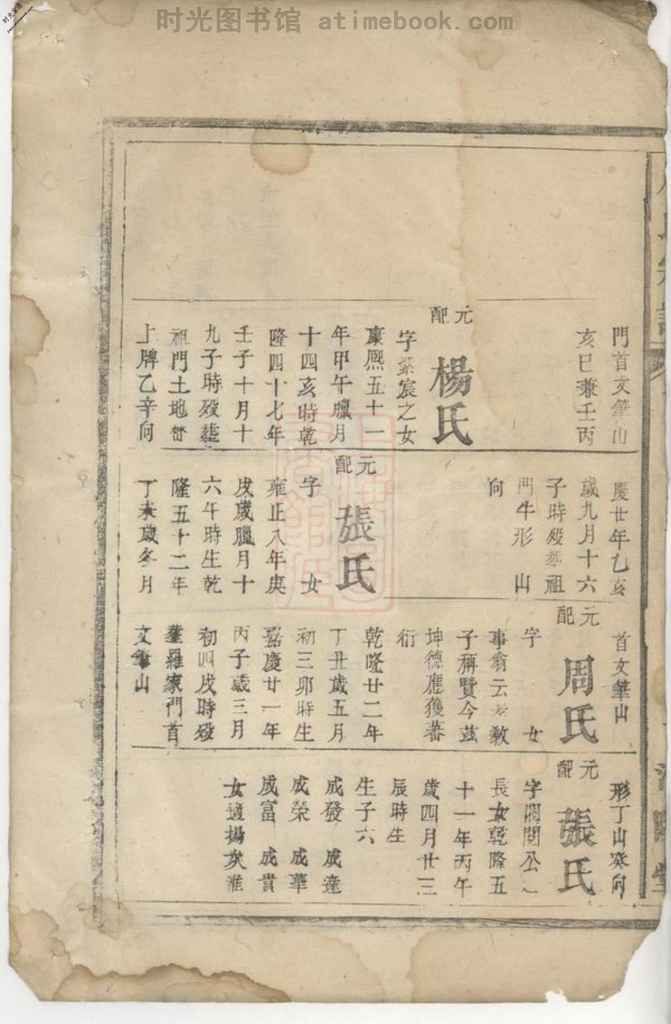 时光图书馆 atimebook.com
門首文筆山
亥巳兼壬丙
元配
楊氏
字宸之女
康熙五十一
年甲午臘月
十四亥時乾
隆四十七年
壬子十月十
九子時殁葬
祖門土地
上牌乙辛向
慶廿年乙亥
歲九月十六
子時殁葬祖
門牛形山
向
元配
張氏
字 女
雍正八年庚
戌歲臘月十
六午時生乾
隆五十二年
丁未歲冬月
首文筆山
元配
周氏
字 女
事翁云教
子稱賢今茲
坤德應獲蕃
衍
乾隆廿二年
丁丑歲五月
初三卯時生
嘉慶廿一年
丙子歲三月
初四戌時殁
葬羅家門首
文筆山
形丁山癸向
元配
張氏
字閏公
長女乾隆五
十一年丙午
歲四月廿三
辰時生
生子六
成發 成達
成榮 成華
成富 成貴
女適楊
堂